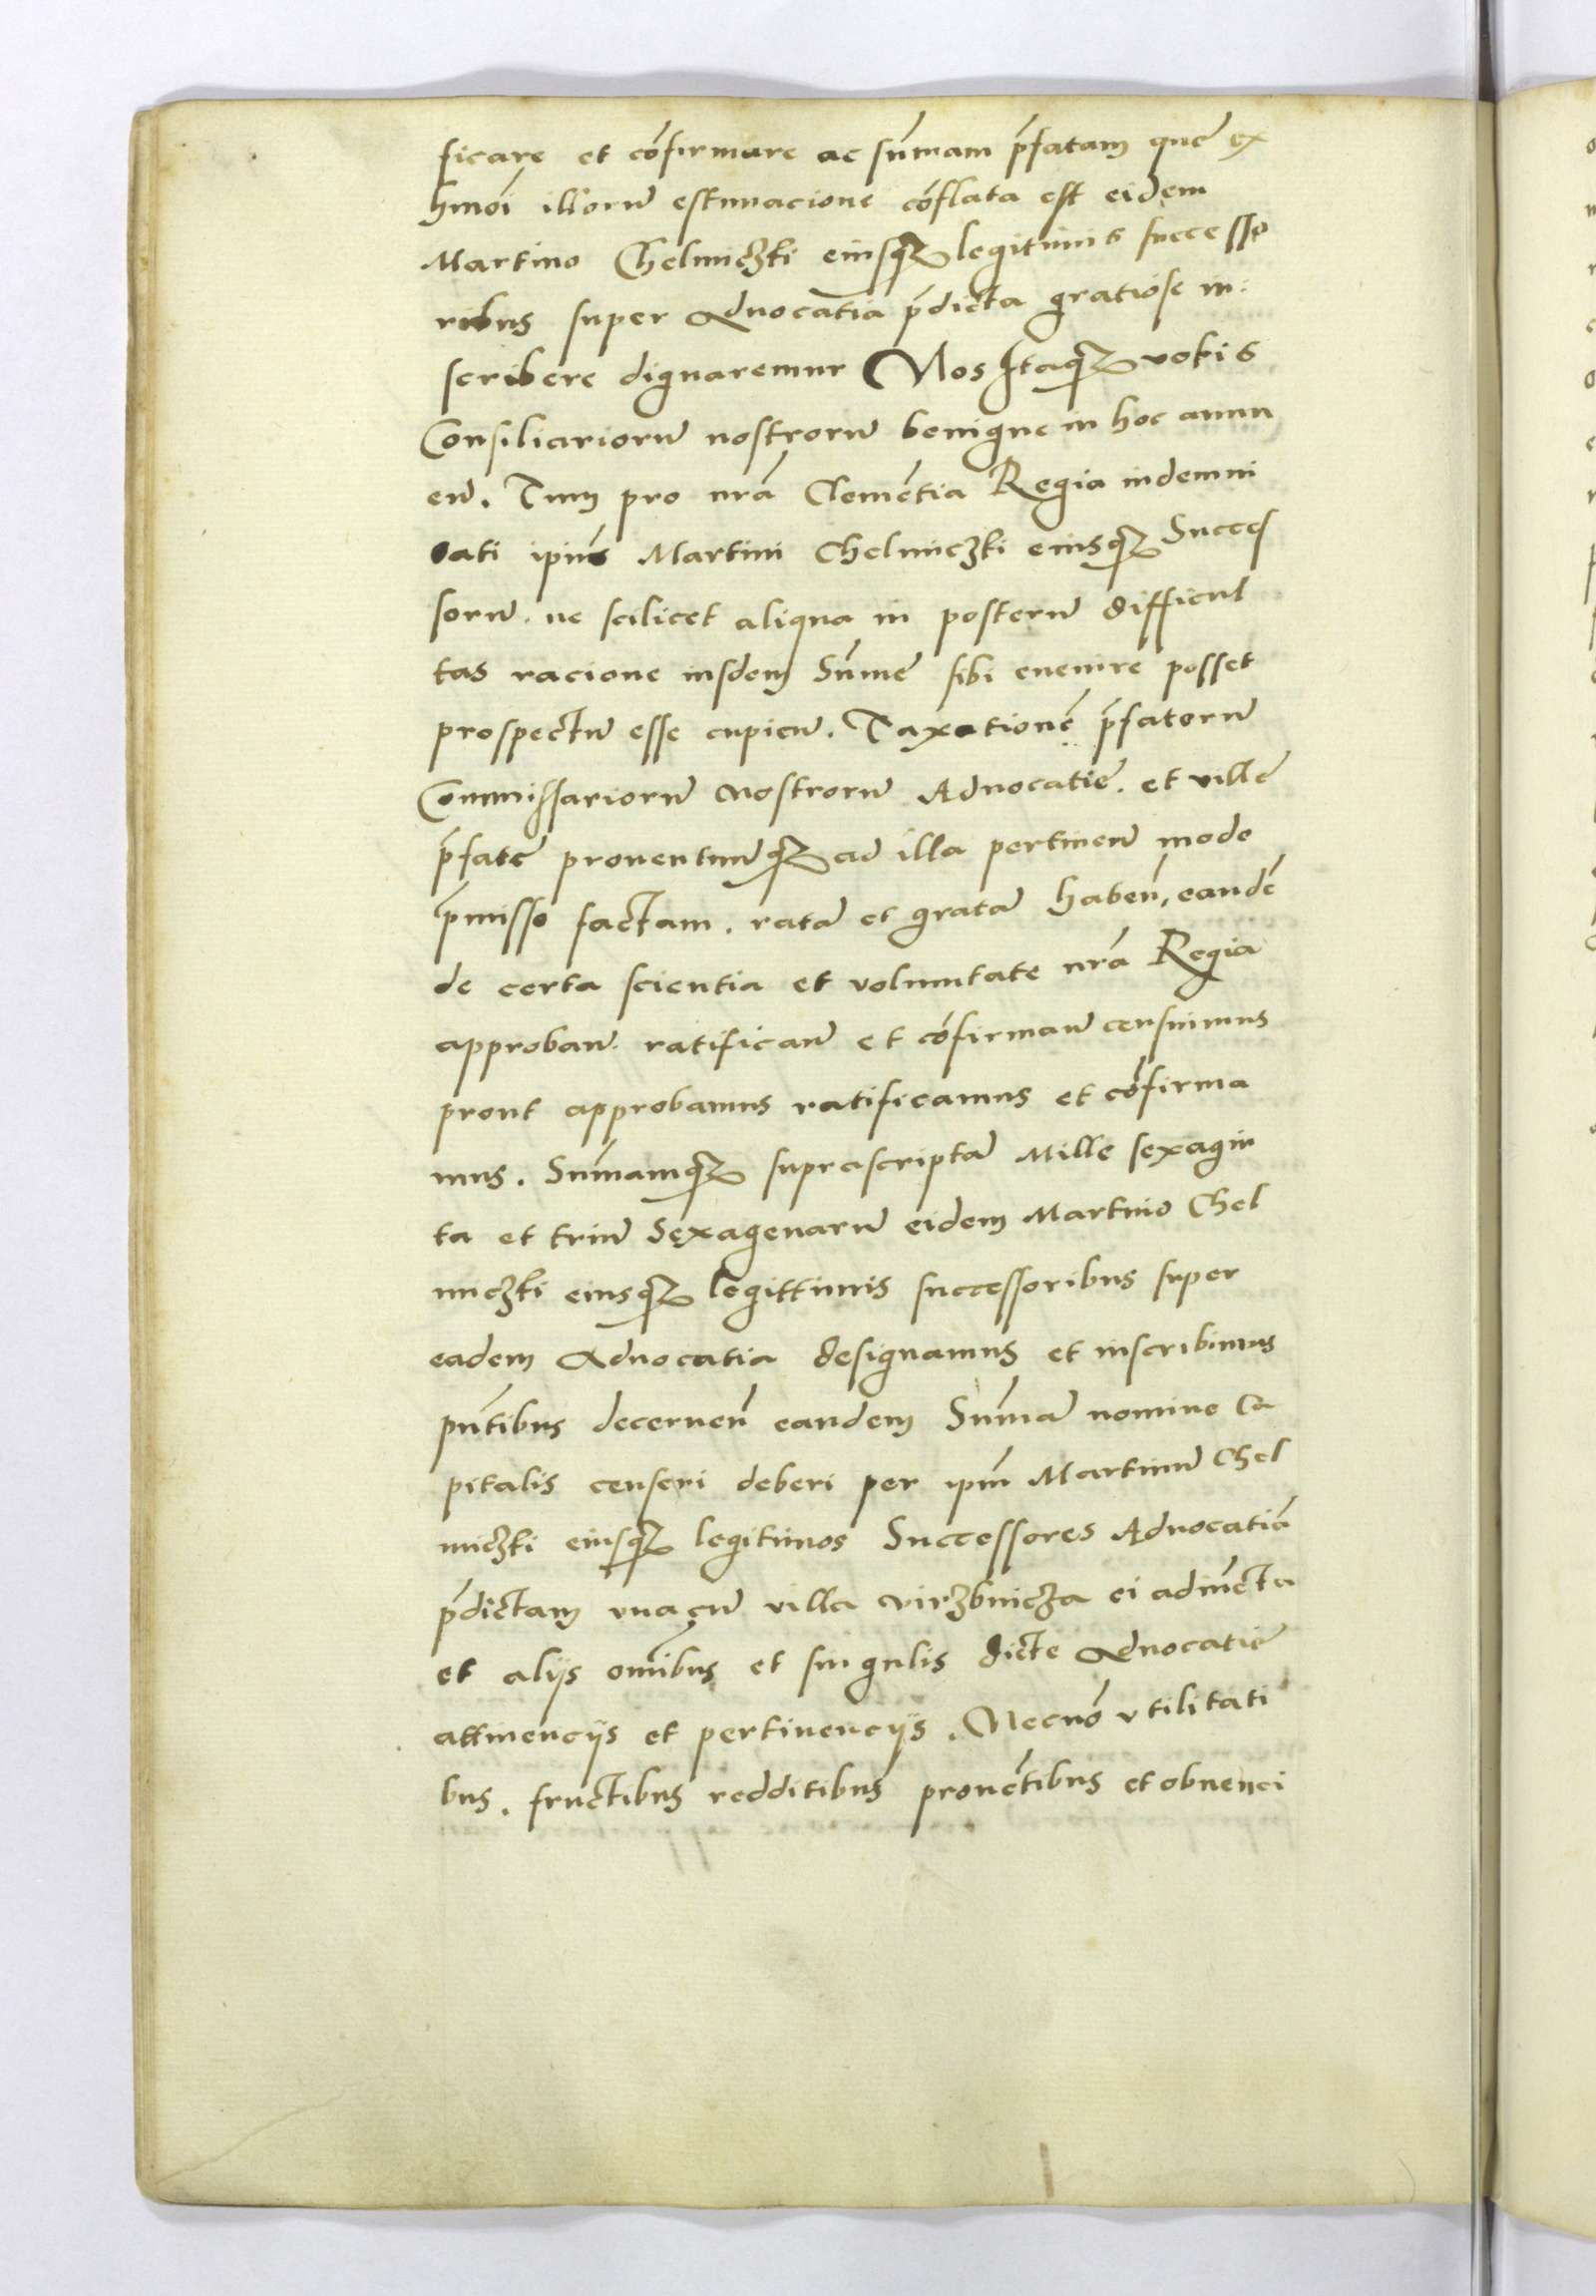 ficare et cōfirmare ac sūmam p̄fatam quē ex
hmōi illorū estimacione cōflata est eidem
Martino Chelmiczki eiusq₃ legitimis successo
ribus super Aduocatia p̄dicta gratiose in:
scribere dignaremur Nos Itaq₃ votis
Consiliariorū nostrorū benigne in hoc annu
en̄. Tum pro nr̄a Clemētia Regia indemni
tati ip̄ius Martini Chelmiczki eiusq₃ Succes
sorū. ne scilicet aliqua in posterū difficul
tas racione iusdem Sūme sibi euenire posset
prospectū esse cupien̄. Taxationē p̄fatorū
Commissariorū nostrorū Aduocatie. et ville
p̄fate prouentuūq₃ ad illa pertinen̄ modo
p̄misso factam. ratā et gratā haben̄, eandē
de certa scientia et voluntate nr̄a Regia
approban̄. ratifican̄ et cōfirman̄ censuimus
prout approbamus ratificamus et cōfirma
mus. Sūmamq₃ suprascriptā Mille sexagin
ta et triū Sexagenarū eidem Martino Chel
miczki eiusq₃ legittimis successoribus super
eadem Aduocatia designamus et inscribimus
pn̄tibus decernen̄ eandem Sūmā nomine Ca
pitalis censeri deberi per ip̄m Martinū Chel
miczki eiusq₃ legitimos Successores Aduocatiā
p̄dictam vnacū villa virzbnicza ei adiūcta
et alijs om̄ibus et singulis dicte Aduocatie
attinencijs et pertinencijs. Necnō vtilitati
bus. fructibus redditibus prouētibus et obuenci